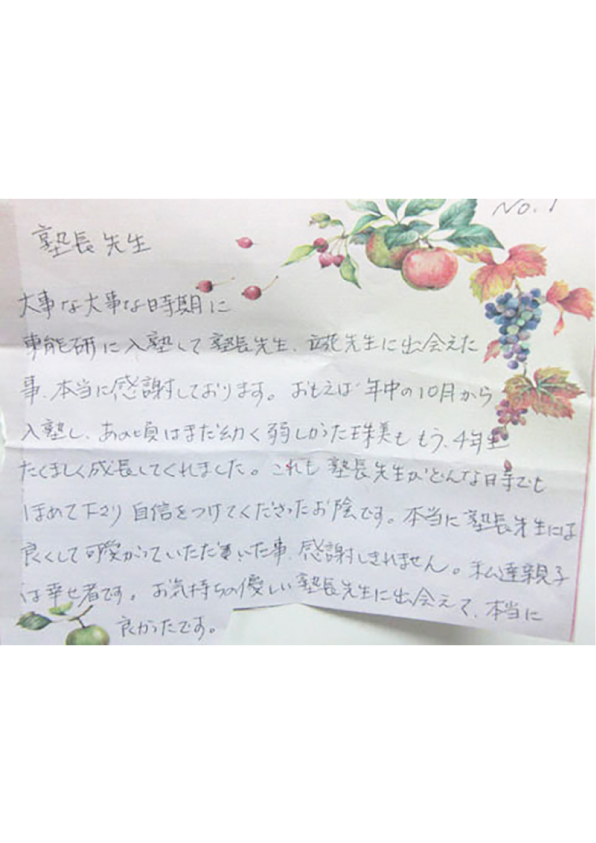 No.1
塾長先生
大事な大事な時期に
専能研に入塾して塾長先生、立花先生に出会えた
事、本当に感謝しております。おもえば年中の10月から
入塾し、あの頃はまだ幼く弱しかった珠美も もう、4年生
たくましく成長してくれました。これも 塾長先生がどんな時でも
ほめて下さり 自信をつけてくださったお陰です。本当に塾長先生には
良くして可愛がっていただいた事、感謝しきれません。私達親子
は幸せ者です。お気持ちの優しい塾長先生に出会えて、本当に
良かったです。